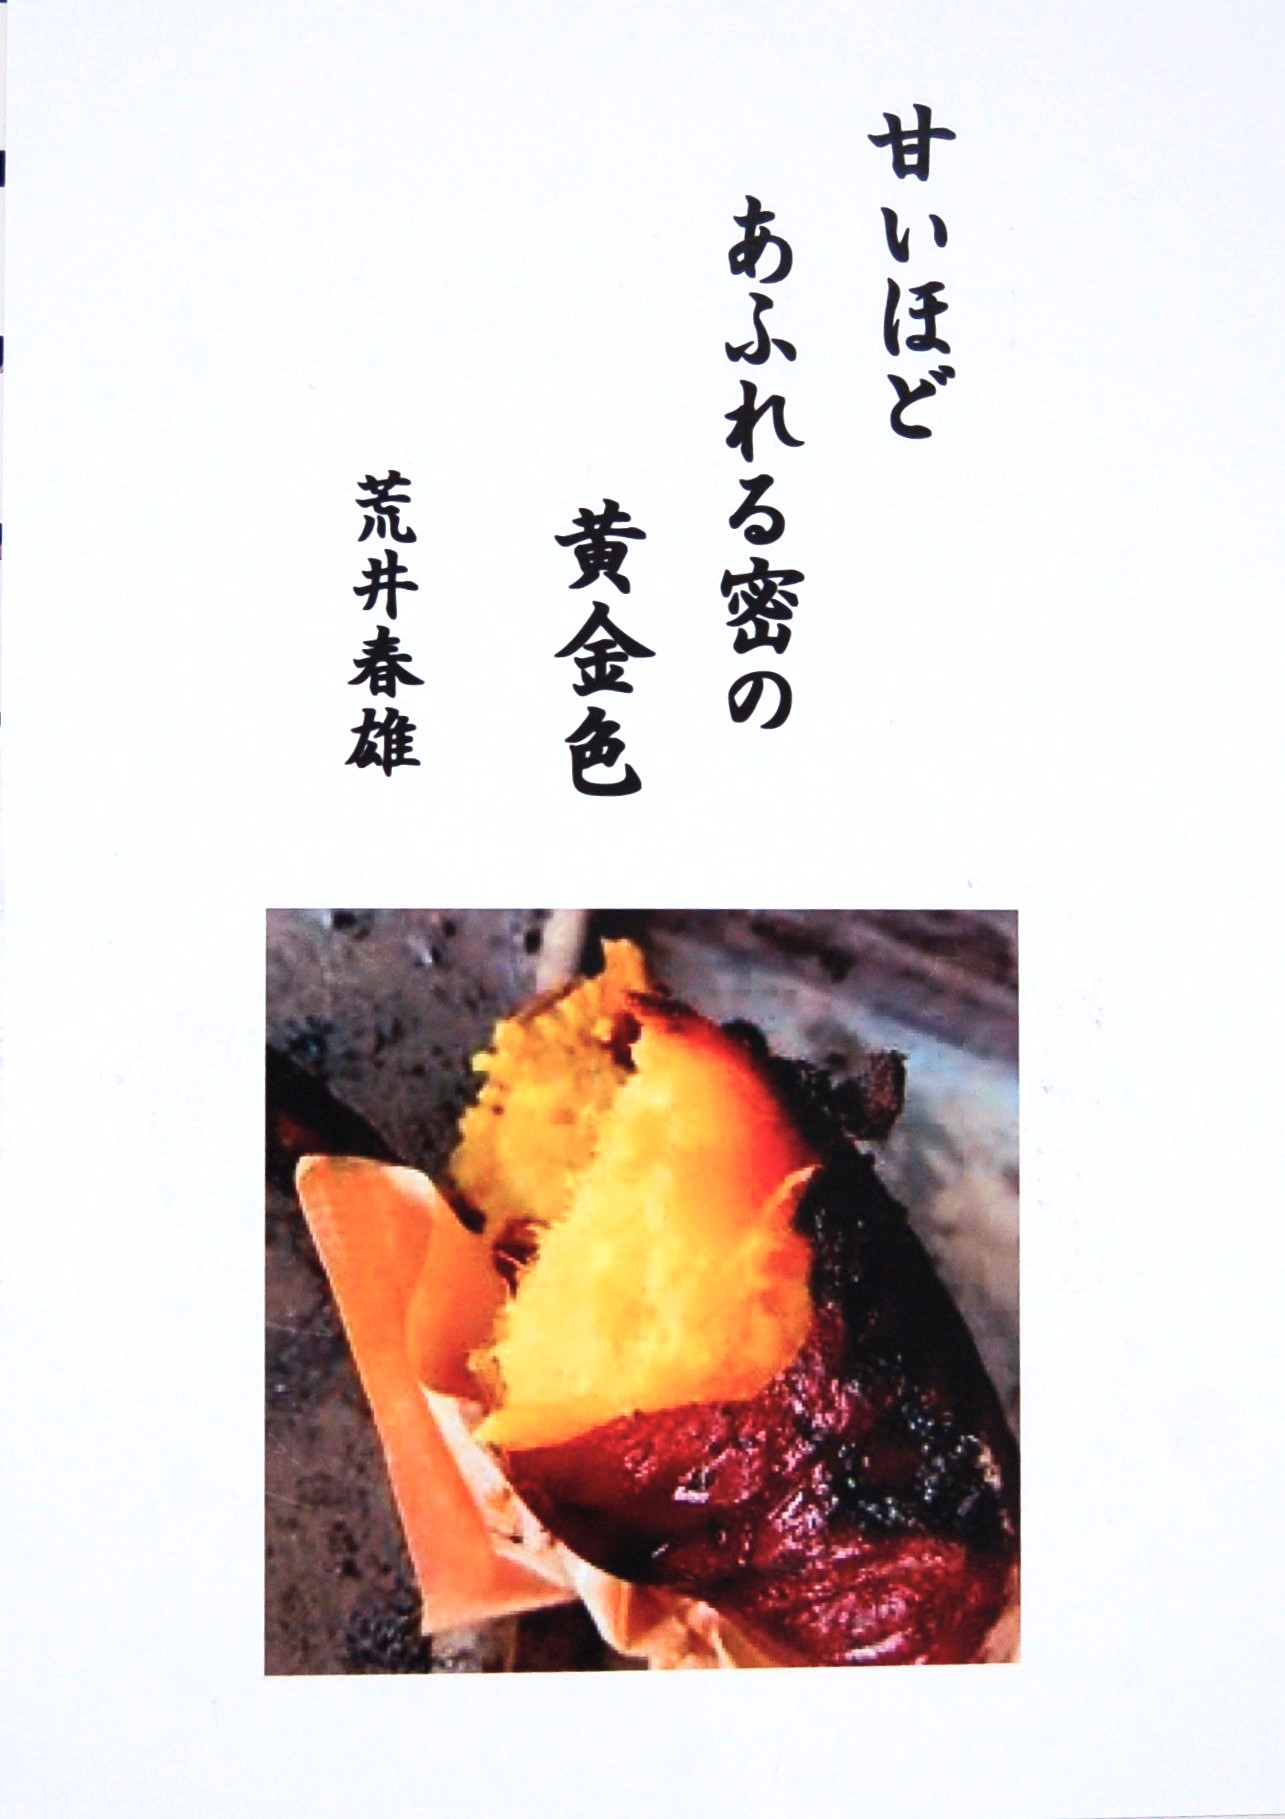 甘いほど
あふれる密の
黄金色
荒井春雄